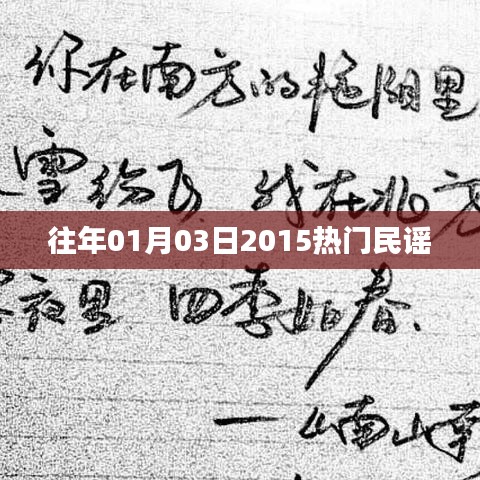 你在南方的艳阳里
雪纷飞 我在北方
往年01月03日2015热门民谣
寒夜里 四季如春、
—南山南